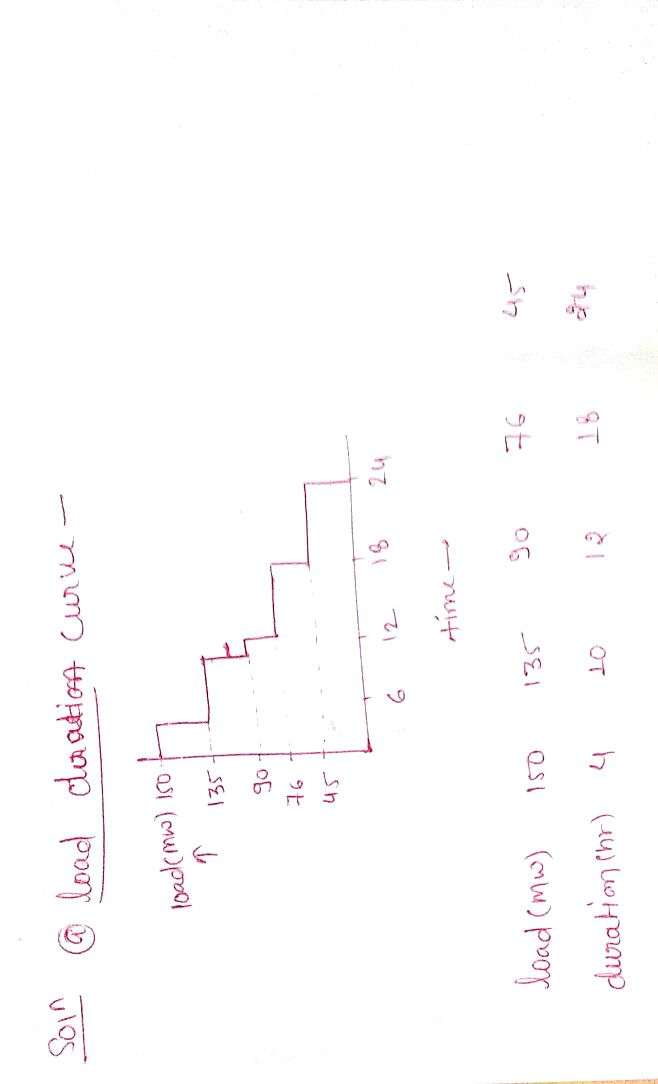 Soln (a) load duration curve —
load (mw) 150
135
90
76
45
6 12 18 24
time →
load (mw) 150 135 90 76 45
duration (hr) 4 10 12 18 24